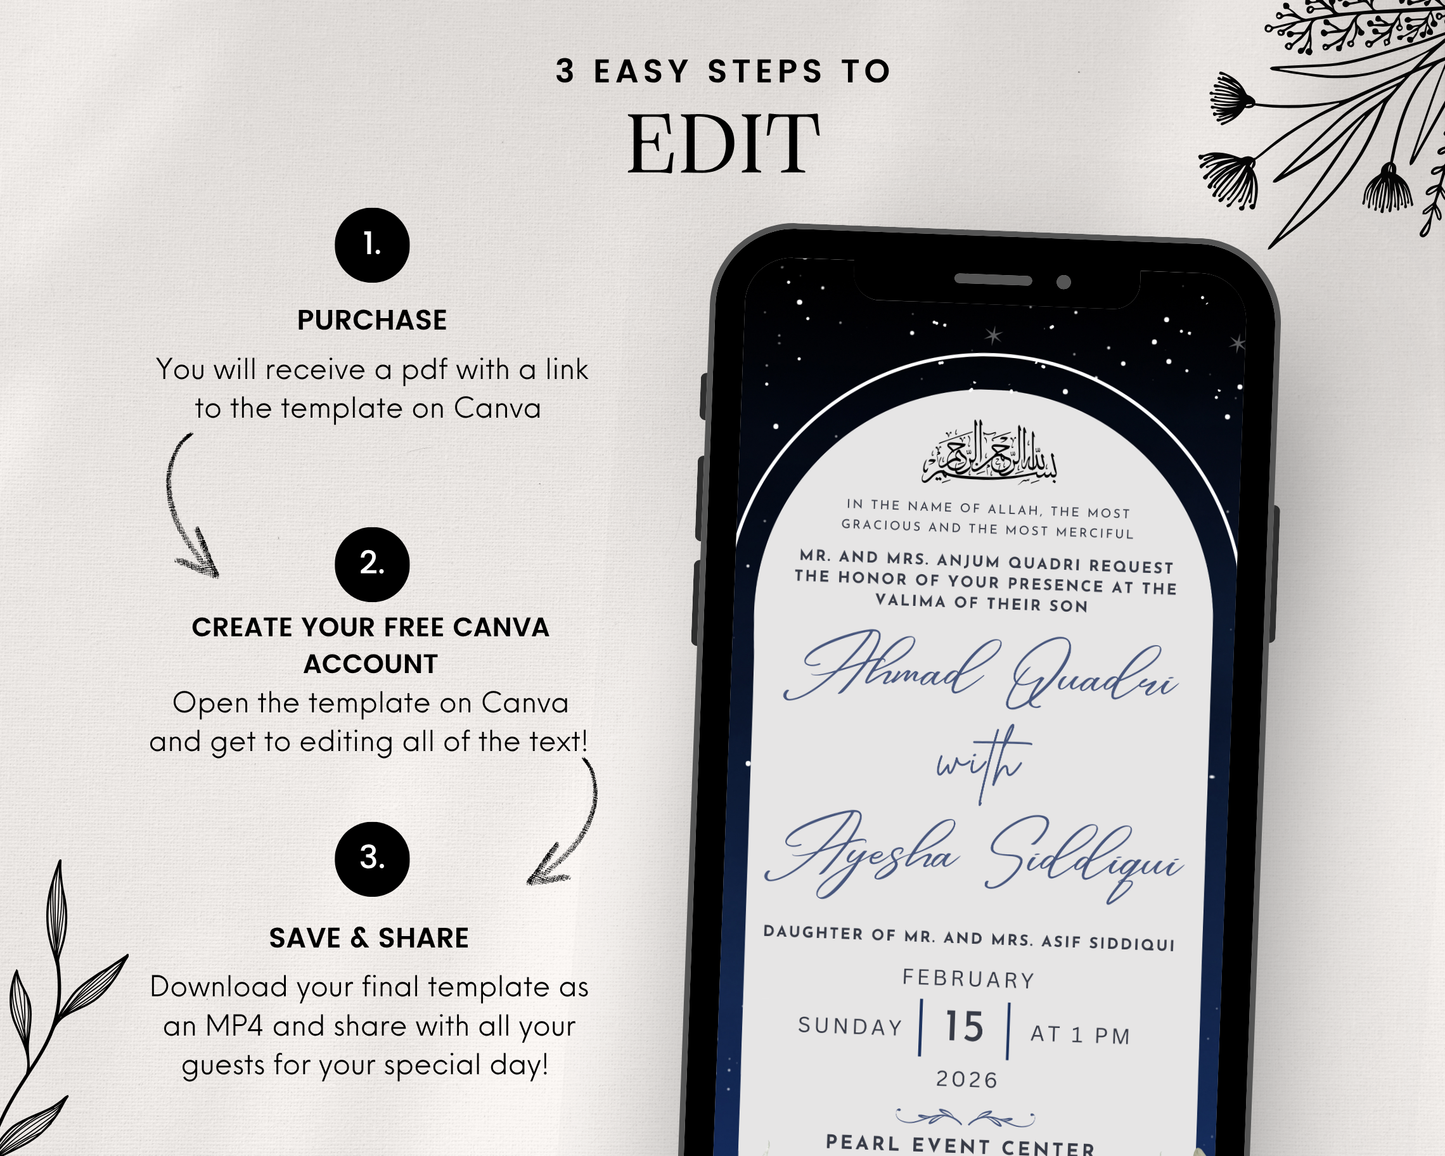 3 EASY STEPS TO
EDIT
1.
PURCHASE
You will receive a pdf with a link
to the template on Canva
2.
CREATE YOUR FREE CANVA
ACCOUNT
Open the template on Canva
and get to editing all of the text!
3.
SAVE & SHARE
Download your final template as
an MP4 and share with all your
guests for your special day!
بسم الله الرحمن الرحيم
IN THE NAME OF ALLAH, THE MOST
GRACIOUS AND THE MOST MERCIFUL
MR. AND MRS. ANJUM QUADRI REQUEST
THE HONOR OF YOUR PRESENCE AT THE
VALIMA OF THEIR SON
Ahmad Quadri
with
Ayesha Siddiqui
DAUGHTER OF MR. AND MRS. ASIF SIDDIQUI
FEBRUARY
SUNDAY 15 AT 1 PM
2026
PEARL EVENT CENTER